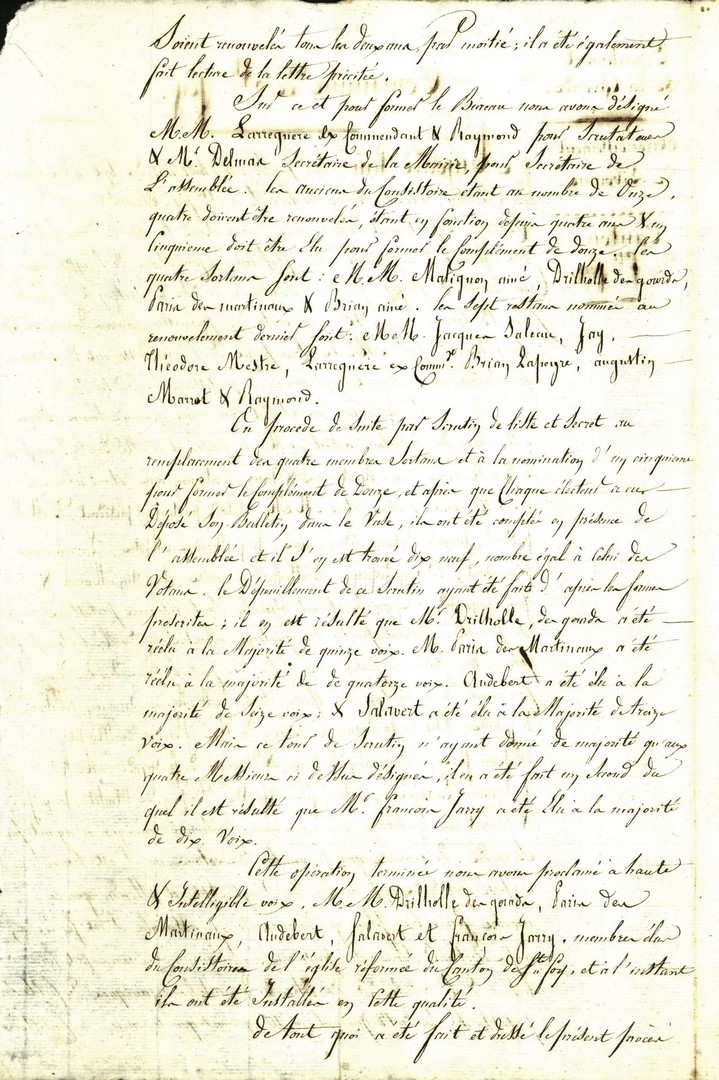 Soient renouvelés tous les deux ans, par moitié ; il a été également
fait lecture de la lettre précitée.
Sur ce et pour former le Bureau nous avons désigné
M.M. Larreguère ex Commendant & Raymond pour Scrutateurs
& Mr. Delmas Secrétaire de la Mairie, pour Secrétaire de
L'assemblée. les anciens du Consistoire étant au nombre de Onze,
quatre doivent être renouvelés, étant en fonction depuis quatre ans & un
Cinquieme doit être Elu pour former le Complément de douze. les
quatre Sortans sont : M.M. Matignon ainé, Drilholle des gourds,
Paris des martinaux & Brian ainé. les Sept restans nommés au
renouvelement dernier sont : M.M. Jacques Saleau, Jay,
Théodore Mestre, Larreguère ex Commt. Brian Lapeyre, augustin
Marrot & Raymond.
On procede de suite par Scrutin de liste et Secret au
remplacement des quatre membres Sortans et à la nomination d'un cinquieme
pour former le Complément de Douze, et après que Chaque électeur a eu
Déposé Son Bulletin dans le Vase, ils ont été comptés en présence de
l'assemblée et il S'en est trouvé dix neuf, nombre égal à Celui des
Votans. le Dépouillement de ce Scrutin ayant été fait d'après les formes
prescrites ; il en est résulté que Mr. Drilholle, des gourds a été
réélu à la Majorité de quinze voix. M. Paris des Martinaux a été
réélu à la majorité de de quatorze voix. Audebert a été élu à la
majorité de Seize voix ; & Salavert a été élu à la Majorité de treize
Voix. Mais ce tour de Scrutin n'ayant donné de majorité qu'aux
quatre Messieurs ci dessus désignés, il en a été fait un Second du
quel il est résulté que Mr. françois Jarry a été Elu à la majorité
de dix Voix.
Cette opération terminée nous avons proclamé a haute
& Intelligible voix, M.M. Drilholle des gourds, Paris des
Martinaux, Audebert, Salavert et françois Jarry, membres élus
du Consistoires de l'église réformée du Canton de Ste. foy, et à l'instant
ils ont été Installés en Cette qualité.
de tout quoi a été fait et dréssé le présent procès